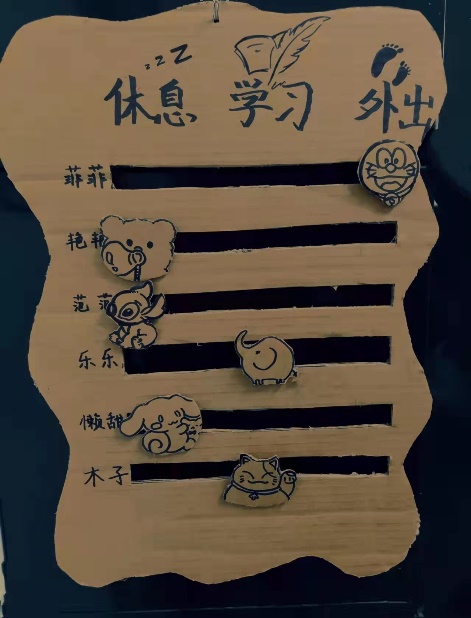 zzZ
休息 学习 外出
菲菲
艳艳
范范
乐乐
懒甜
木子